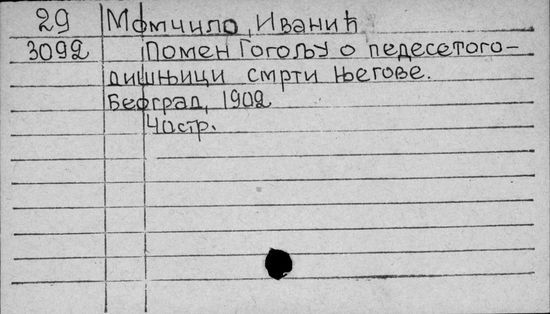 29 Момчило Иванић
3092 Помен Гогољу о педесетого-
дишњици смрти његове.
Београд, 1902
40 стр.